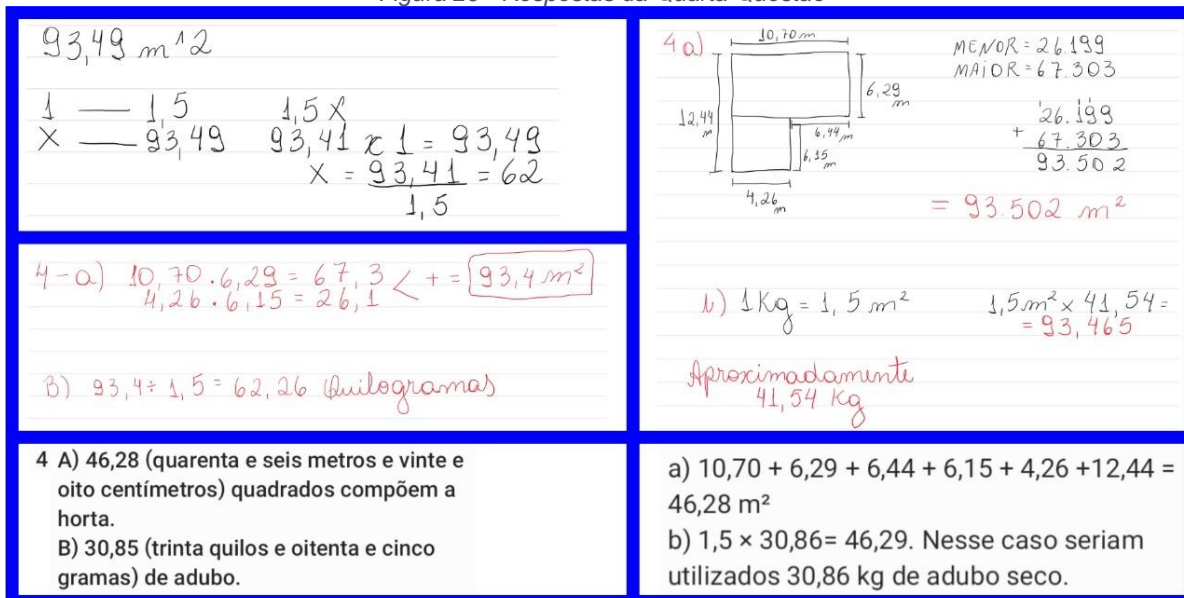 93,49 m^2
1 — 1,5 1,5 X
X — 93,49 93,41 x 1 = 93,49
X = 93,41 = 62
1,5
4-a) 10,70 . 6,29 = 67,3
4,26 . 6,15 = 26,1 < + = 93,4 m²
B) 93,4 ÷ 1,5 = 62,26 Quilogramas
4 A) 46,28 (quarenta e seis metros e vinte e
oito centímetros) quadrados compõem a
horta.
B) 30,85 (trinta quilos e oitenta e cinco
gramas) de adubo.
4 a)
10,70 m
6,29 m
12,44 m
6,44 m
6,15 m
4,26 m
MENOR = 26.199
MAIOR = 67.303
26.199
+ 67.303
93.502
= 93.502 m²
b) 1 Kg = 1,5 m² 1,5 m² x 41,54 =
= 93,465
Aproximadamente
41,54 Kg
a) 10,70 + 6,29 + 6,44 + 6,15 + 4,26 +12,44 =
46,28 m²
b) 1,5 × 30,86= 46,29. Nesse caso seriam
utilizados 30,86 kg de adubo seco.